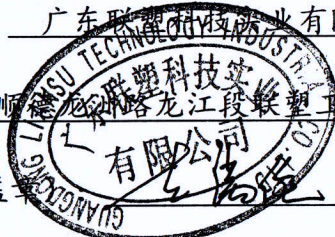 广东联塑科技实业有限
顺德龙洲路龙江段联塑工
GUANGDONG LIANSU TECHNOLOGY INDUSTRIAL CO.
广东联塑科技实业
有限公司
章